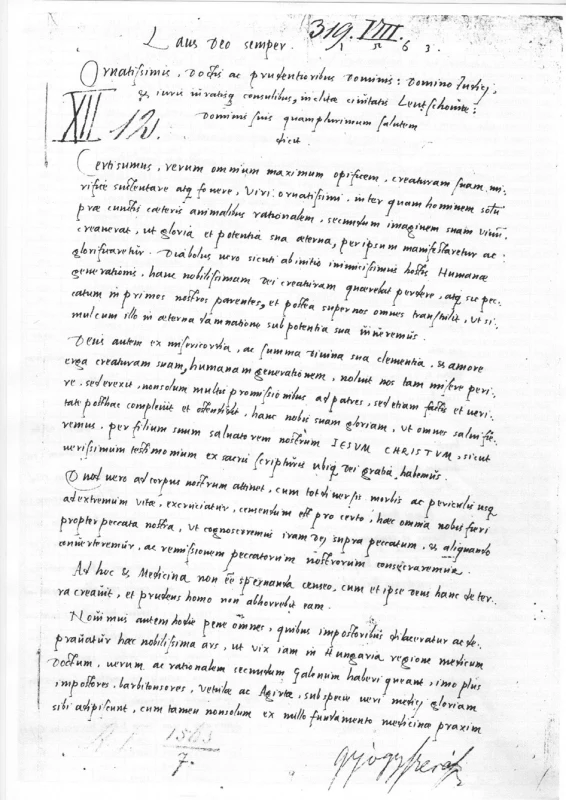 319. VIII.
Laus Deo semper. 1563.
Ornatissimis, Doctis ac prudentioribus Dominis: Domino Iudici,
& iuris iuratisq consulibus, inclitæ civitatis Leutschoviæ:
XII 12.
Dominis suis quamplurimum salutem
dicit.
Certi sumus, verum omnium maximum opificem, creaturam suam mi-
rifice sustentare atq fovere, viri ornatissimi. inter quam hominem solū
præ cunctis cæteris animalibus rationalem, secundum imaginem suam vivū
creaverat, ut gloria et potentia sua æterna, per ipsum manifestaretur ac
glorificaretur. Diabolus vero sicuti ab initio inimicissimus hostis Humanæ
generationis, hanc nobilissimam Dei creaturam quærebat perdere, atq sic pec-
catum in primos nostros parentes, et postea super nos omnes transtulit, ut si-
mul cum illo in æterna damnatione sub potentia sua
Deus autem ex misericordia, ac summa divina sua clementia, & amore
erga creaturam suam, humanam generationem, noluit nos tam misere peri-
re. sed erexit, non solum multis promissionibus ad patres, sed etiam factis et veri-
tate posthac complevit et ostendit, hanc nobis suam gloriam, ut omnes
remus. per filium suum salvatorem nostrum IESUM CHRISTUM, sicut
verissimum testimonium ex sacris scripturis ubiq Dei gratia, habemus.
Quod vero ad corpus nostrum attinet, cum tot diversis morbis ac periculis usq
ad extremum vitæ, excruciatur, censendum est pro certo, hæc omnia nobis fieri
propter peccata nostra, ut cognoscoremus iram Dei supra peccatum, & aliquando
converteremur, ac remissionem peccatorum nostrorum
Ad hoc & Medicina non eē spernanda censeo, cum et ipse Deus hanc de ter-
ra creavit, et prudens homo non abhorrebit eam.
Novimus autem hodie pene omnes, quibus impostoribus dilaceratur ac de-
pravatur hæc nobilissima ars, ut vix iam in Hungaria regione medicum
Doctum, verum ac rationalem secundum Galenum haberi queant, imo plus
impostores, barbitonsores, vetulæ ac Agirtæ, sub specie veri medici gloriam
sibi adipiscunt, cum tamen non solum ex nullo fundamento medicinæ praxim
1563
7.